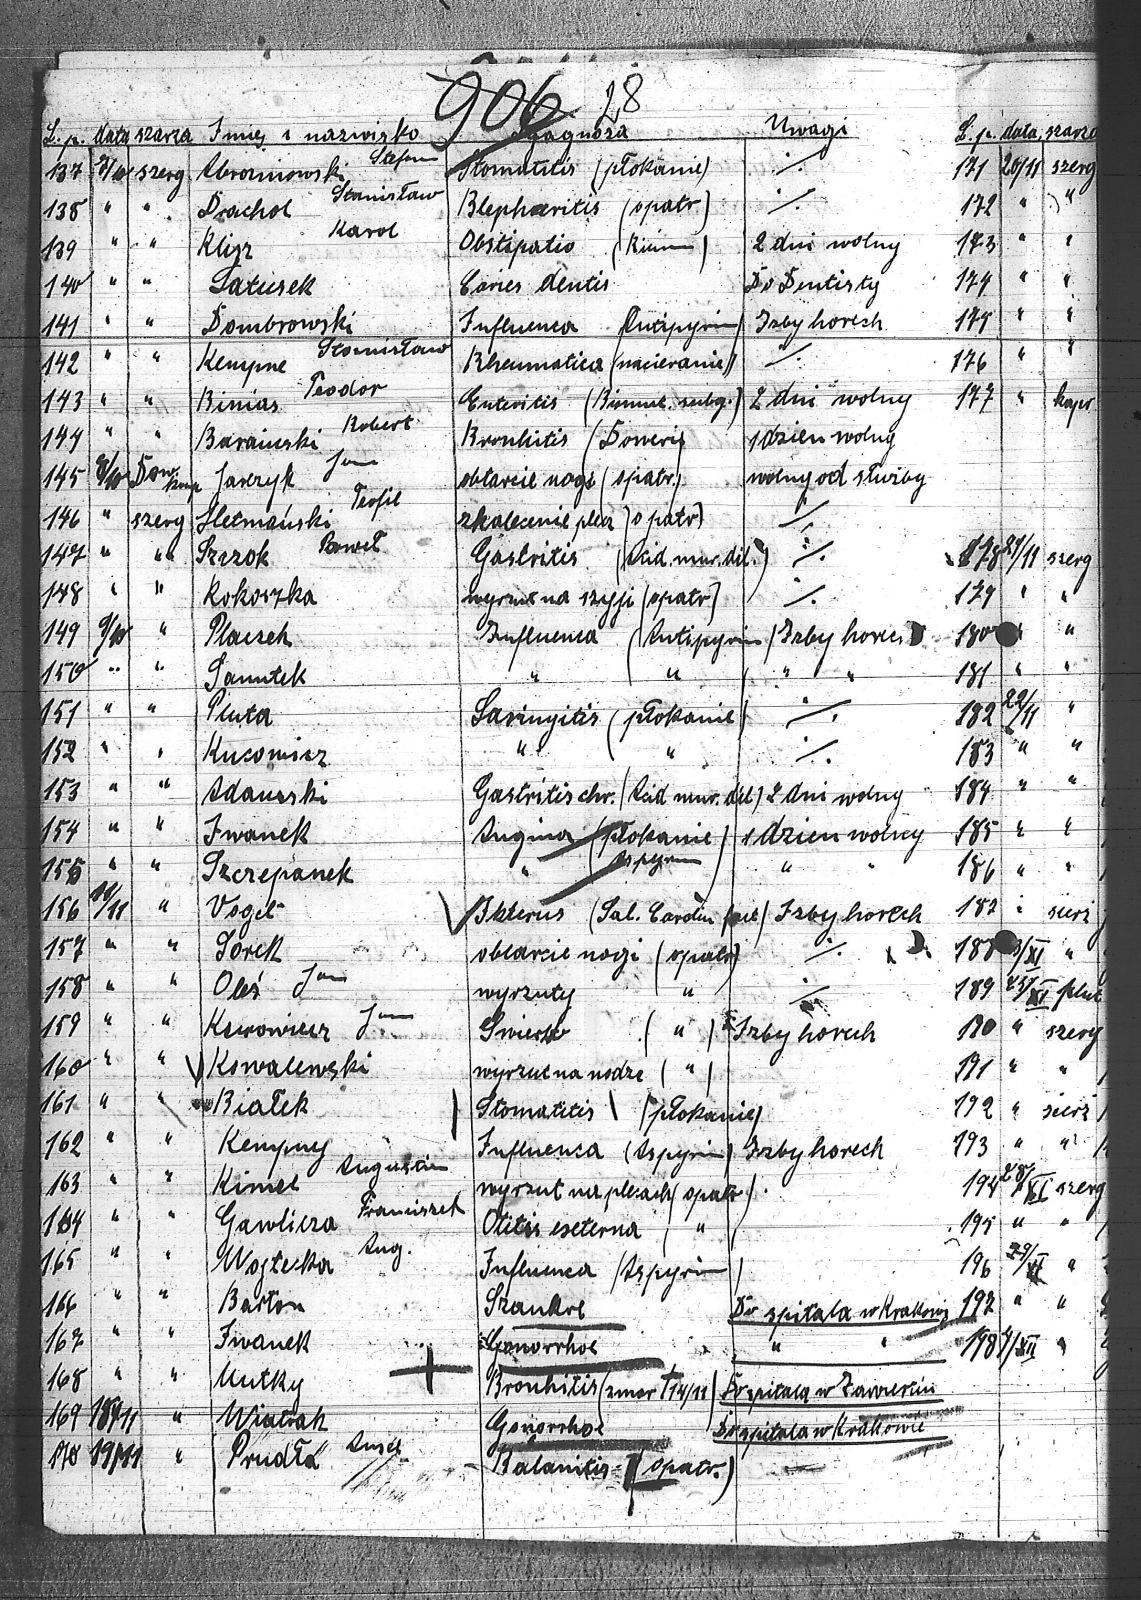 906 28
L. p. data szarża Imię i nazwisko Djagnoza Uwagi L. p. data szarża
137 szerg Stefan Stomatitis (płokanie) ./. 171 20/11 szerg
138 " " Drachol Stanisław Blepharitis (opatr) ./. 172 " "
139 " " Klisz Karol Obstipatio 2 dni wolny 173 " "
140 " " Latusek Caries dentis Do Dentisty 174 " "
141 " " Dombrowski Influenca (Antipyrin) Izby horech 175 " "
142 " " Kempne Stanisław Rheumatica (nacieranie) ./. 176 " "
143 " " Binias Teodor Enteritis 2 dni wolny 177 " kapr
144 " " Barański Robert Bronhitis (Doweri) 1 dzien wolny
145 8/10 Jarzyk Jan obtarcie nogi (opatr.) wolny od służby
146 " szerg Hetmański Teofil zkalecenie (opatr) ./.
147 " " Szczok Paweł Gastritis (Acid. mur. dil.) ./. 178 21/11 szerg
148 " " Kokoszka wyrzut na szyji (opatr) ./. 179 " "
149 9/10 " Placzek Influenca (Antipyrin) Izby horech 180 " "
150 " " Sanutek " " " " 181 " "
151 " " Pluta Laringitis (płokanie) ./. 182 22/11 "
152 " " Kucowicz " " ./. 183 " "
153 " " Adamski Gastritis chr. (Acid mur. dil) 2 dni wolny 184 " "
154 " " Iwanek Angina (płokanie) 1 dzien wolny 185 " "
155 " " Szczepanek " Aspyrin " " 186 " "
156 " Vogel Ikterus (Sal. Carolin fact) Izby horech 187 " sierż
157 " " Sorek obtarcie nogi (opatr) ./. 188 "
158 " " Oleś Jan wyrzuty " ./. 189 23/XI plut
159 " " Jan Swierzb ( " ) Izby horech 190 " szerg
160 " " Kowalewski wyrzut na nodze ( " ) 191 " "
161 " " Białek Stomatitis (płokanie) 192 " sierż
162 " " Kempny Influenca (Aspyrin) Izby horech 193 " "
163 " " Kimel Augustin wyrzut na plecach (opatr.) 194 28/XI szerg
164 " " Gawlicza Franciszek Otitis externa ( " ) 195 " "
165 " " Wojtecka Aug. Influenca (Aspyrin) 196 29/XI "
166 " " Barton Szankre Do szpitala w Krakowie 197 " "
167 " " Iwanek Gonorrhoe " " 198 "
168 " " Mutky Bronhitis (zmar † 14/11) Do szpitala w Zawierciu
169 18/11 " Wiatrak Gonorrhoe Do szpitala w Krakowie
170 19/11 " Prudło Balanitis (opatr.)